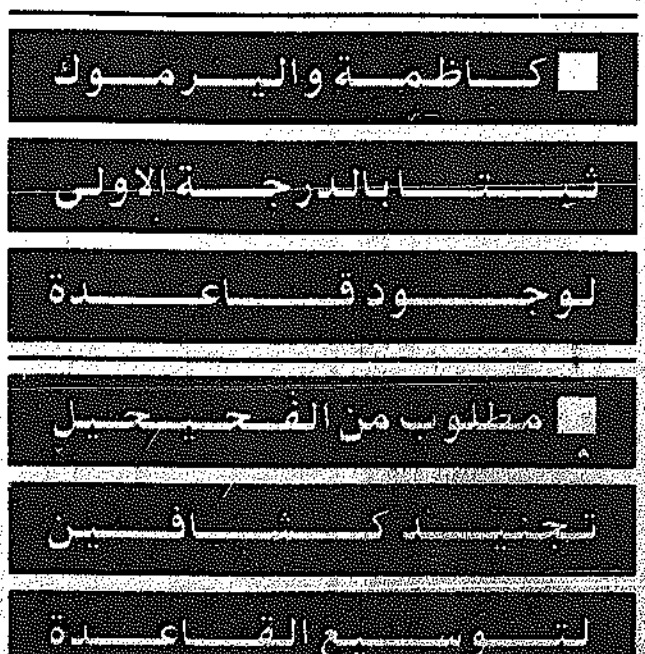 ■ كاظمة واليرموك
ثبتتا بالدرجة الاولى
لوجود قاعدة
■ مطلوب من الفحيحيل
تجنيد كشافين
لتوسيع القاعدة